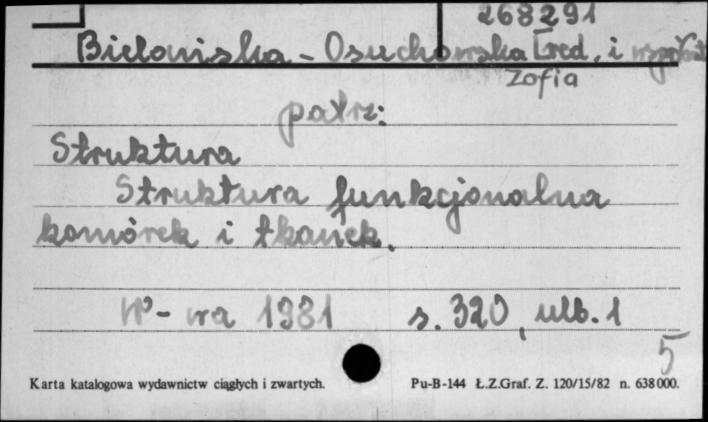 268291
Bielańska-Osuchowska [red. i współaut
Zofia
patrz:
Struktura
Struktura funkcjonalna
komórek i tkanek.
W-wa 1981 s. 320, ulb. 1
5
Karta katalogowa wydawnictw ciągłych i zwartych. Pu-B-144 Ł.Z.Graf. Z. 120/15/82 n. 638000.